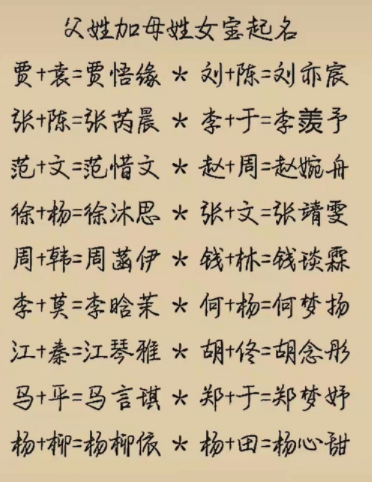 父姓加母姓女宝起名
贾+袁=贾悟缘 * 刘+陈=刘亦宸
张+陈=张芮晨 * 李+于=李羡予
范+文=范惜文 * 赵+周=赵婉舟
徐+杨=徐沐思 * 张+文=张靖雯
周+韩=周菡伊 * 钱+林=钱谈霖
李+莫=李晗茉 * 何+杨=何梦扬
江+秦=江琴雅 * 胡+佟=胡念彤
马+平=马言琪 * 郑+于=郑梦妤
杨+柳=杨柳依 * 杨+田=杨心甜